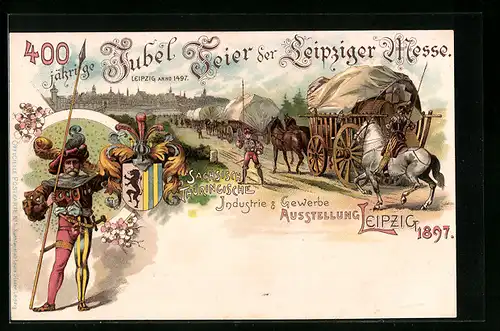 400
jährige Jubel Feier der Leipziger Messe.
LEIPZIG ANNO 1497.
SÄCHSISCH
THÜRINGISCHE
Industrie & Gewerbe
AUSSTELLUNG LEIPZIG
1897.